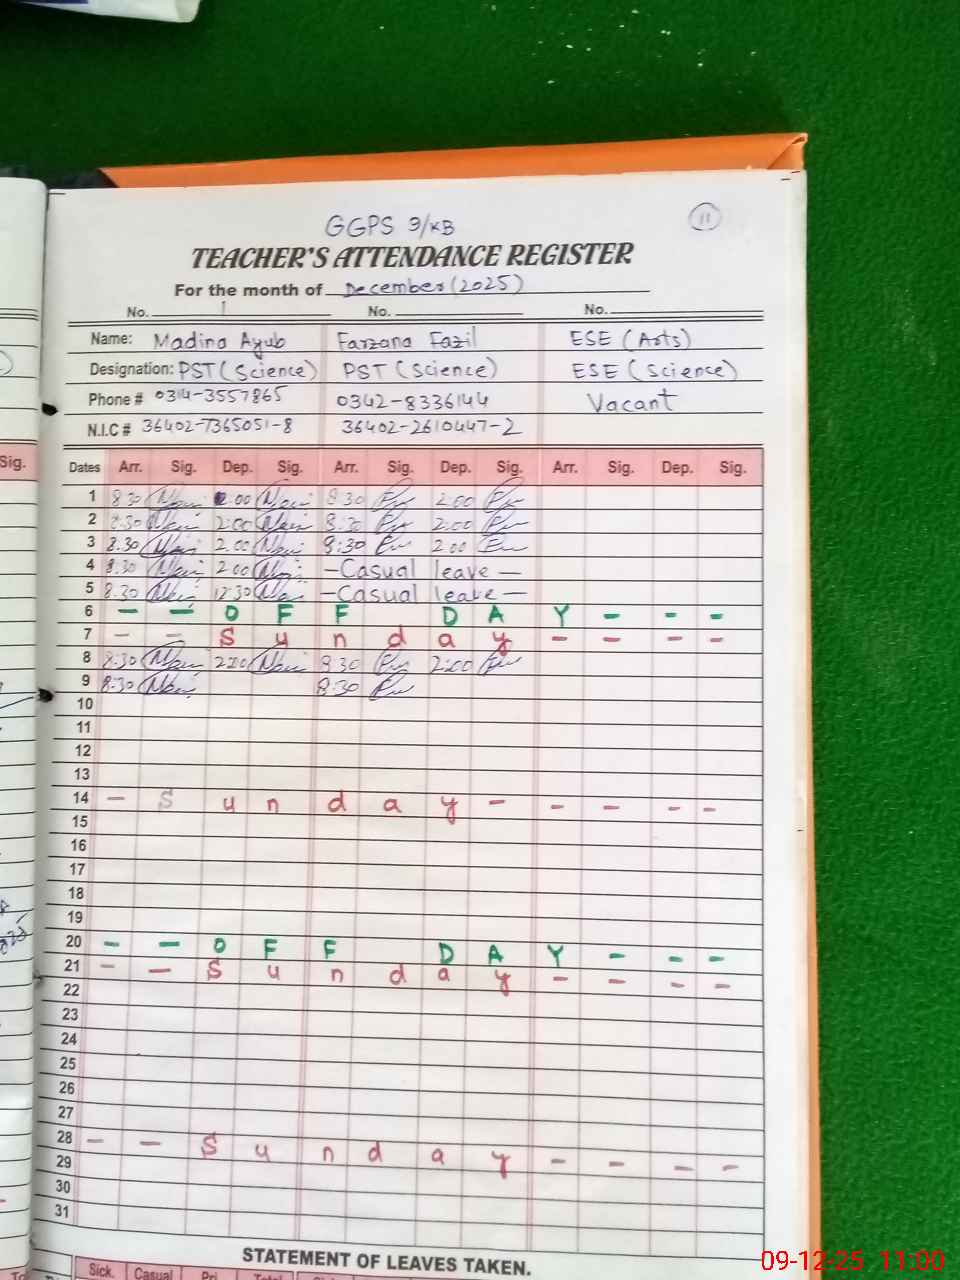 GGPS 9/KB
11
TEACHER'S ATTENDANCE REGISTER
For the month of December (2025)
No. No. No.
Name: Madina Ayub Farzana Fazil ESE (Arts)
Designation: PST (Science) PST (Science) ESE (Science)
Phone # 0314-3557865 0342-8336144 Vacant
N.I.C # 36402-7365051-8 36402-2610447-2
Sig.
Dates Arr. Sig. Dep. Sig. Arr. Sig. Dep. Sig. Arr. Sig. Dep. Sig.
1 8 30 2.00 8 30 2:00
2 8:30 2:00 8:30 2:00
3 8.30 2.00 8:30 2 00
4 8.30 2 00 - Casual leave -
5 8.30 12:30 - Casual leave -
6 - - O F F D A Y - - -
7 - - S u n d a y - - - -
8 8:30 2:00 8 30 2:00
9 8:30 8:30
10
11
12
13
14 - S u n d a y - - - - -
15
16
17
18
19
20 - - O F F D A Y - - -
21 - - S u n d a y - - - -
22
23
24
25
26
27
28 - - S u n d a y - - - -
29
30
31
STATEMENT OF LEAVES TAKEN.
Sick. Casual Pri Total
09-12-25 11:00